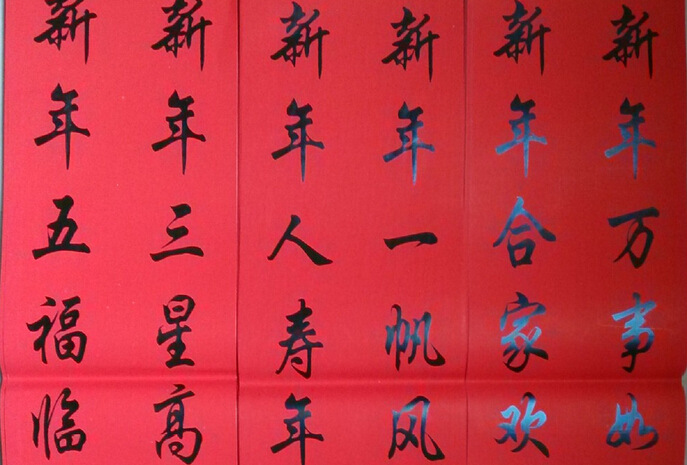 新年万事如
新年合家欢
新年一帆风
新年人寿年
新年三星高
新年五福临